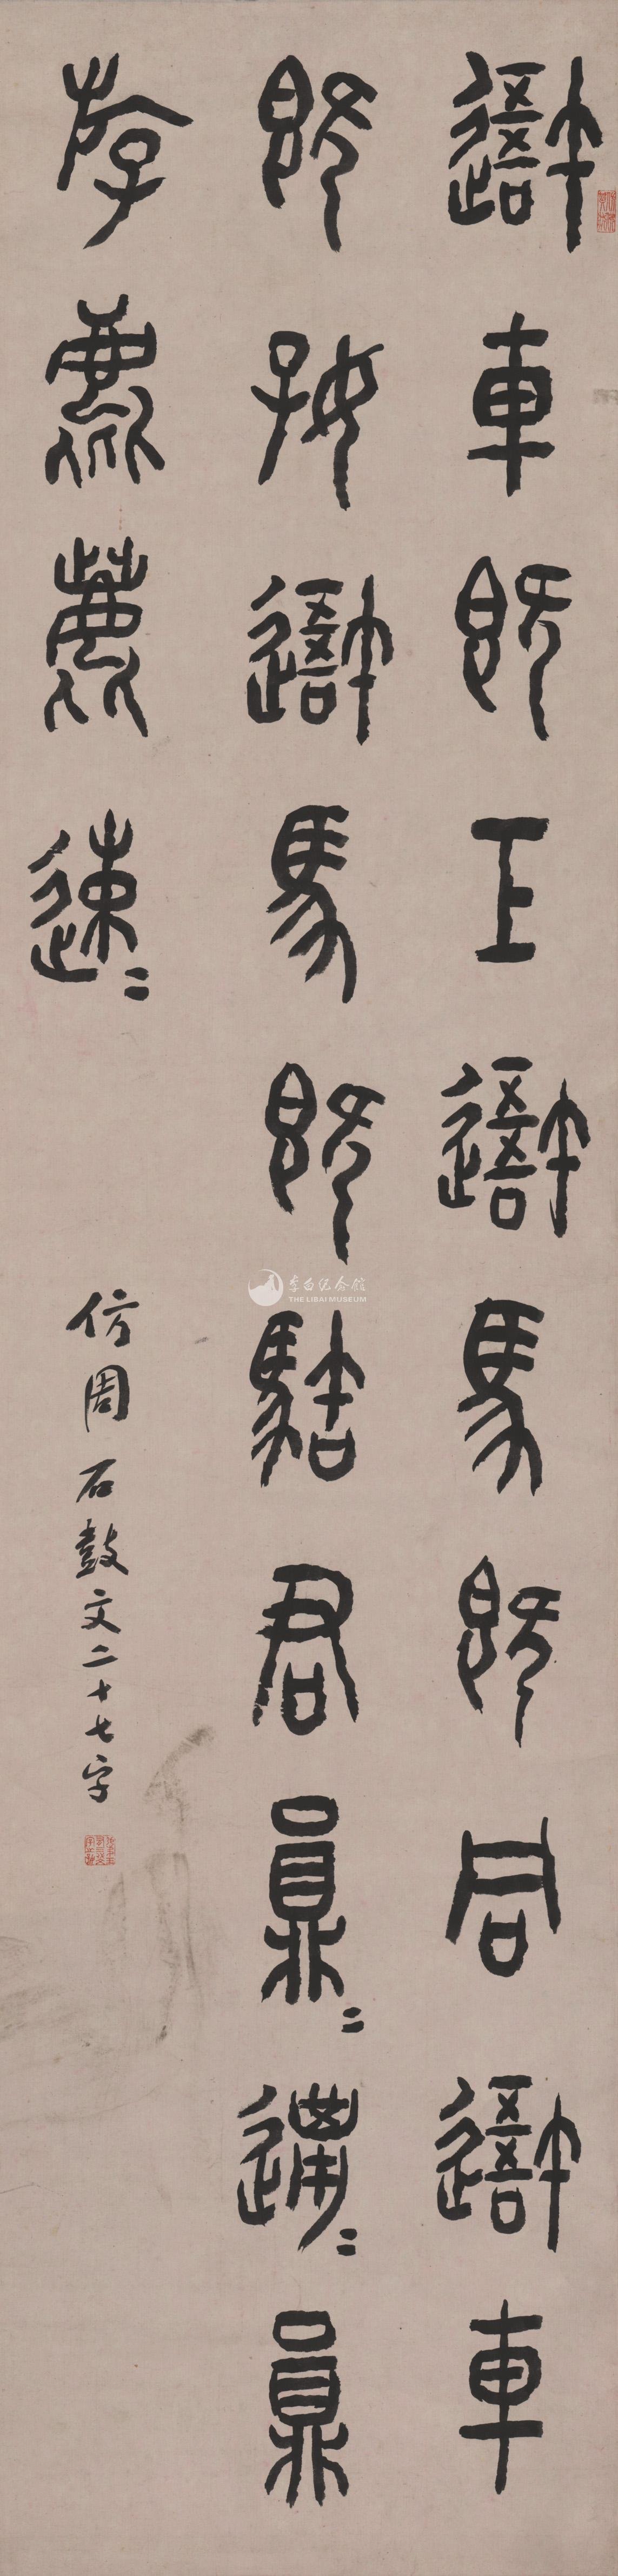 吾車既工吾馬既同吾車
既好吾馬既駂君員=邋=員
斿麀鹿速=
仿周石鼓文二十七字
李白纪念馆
THE LIBAI MUSEUM